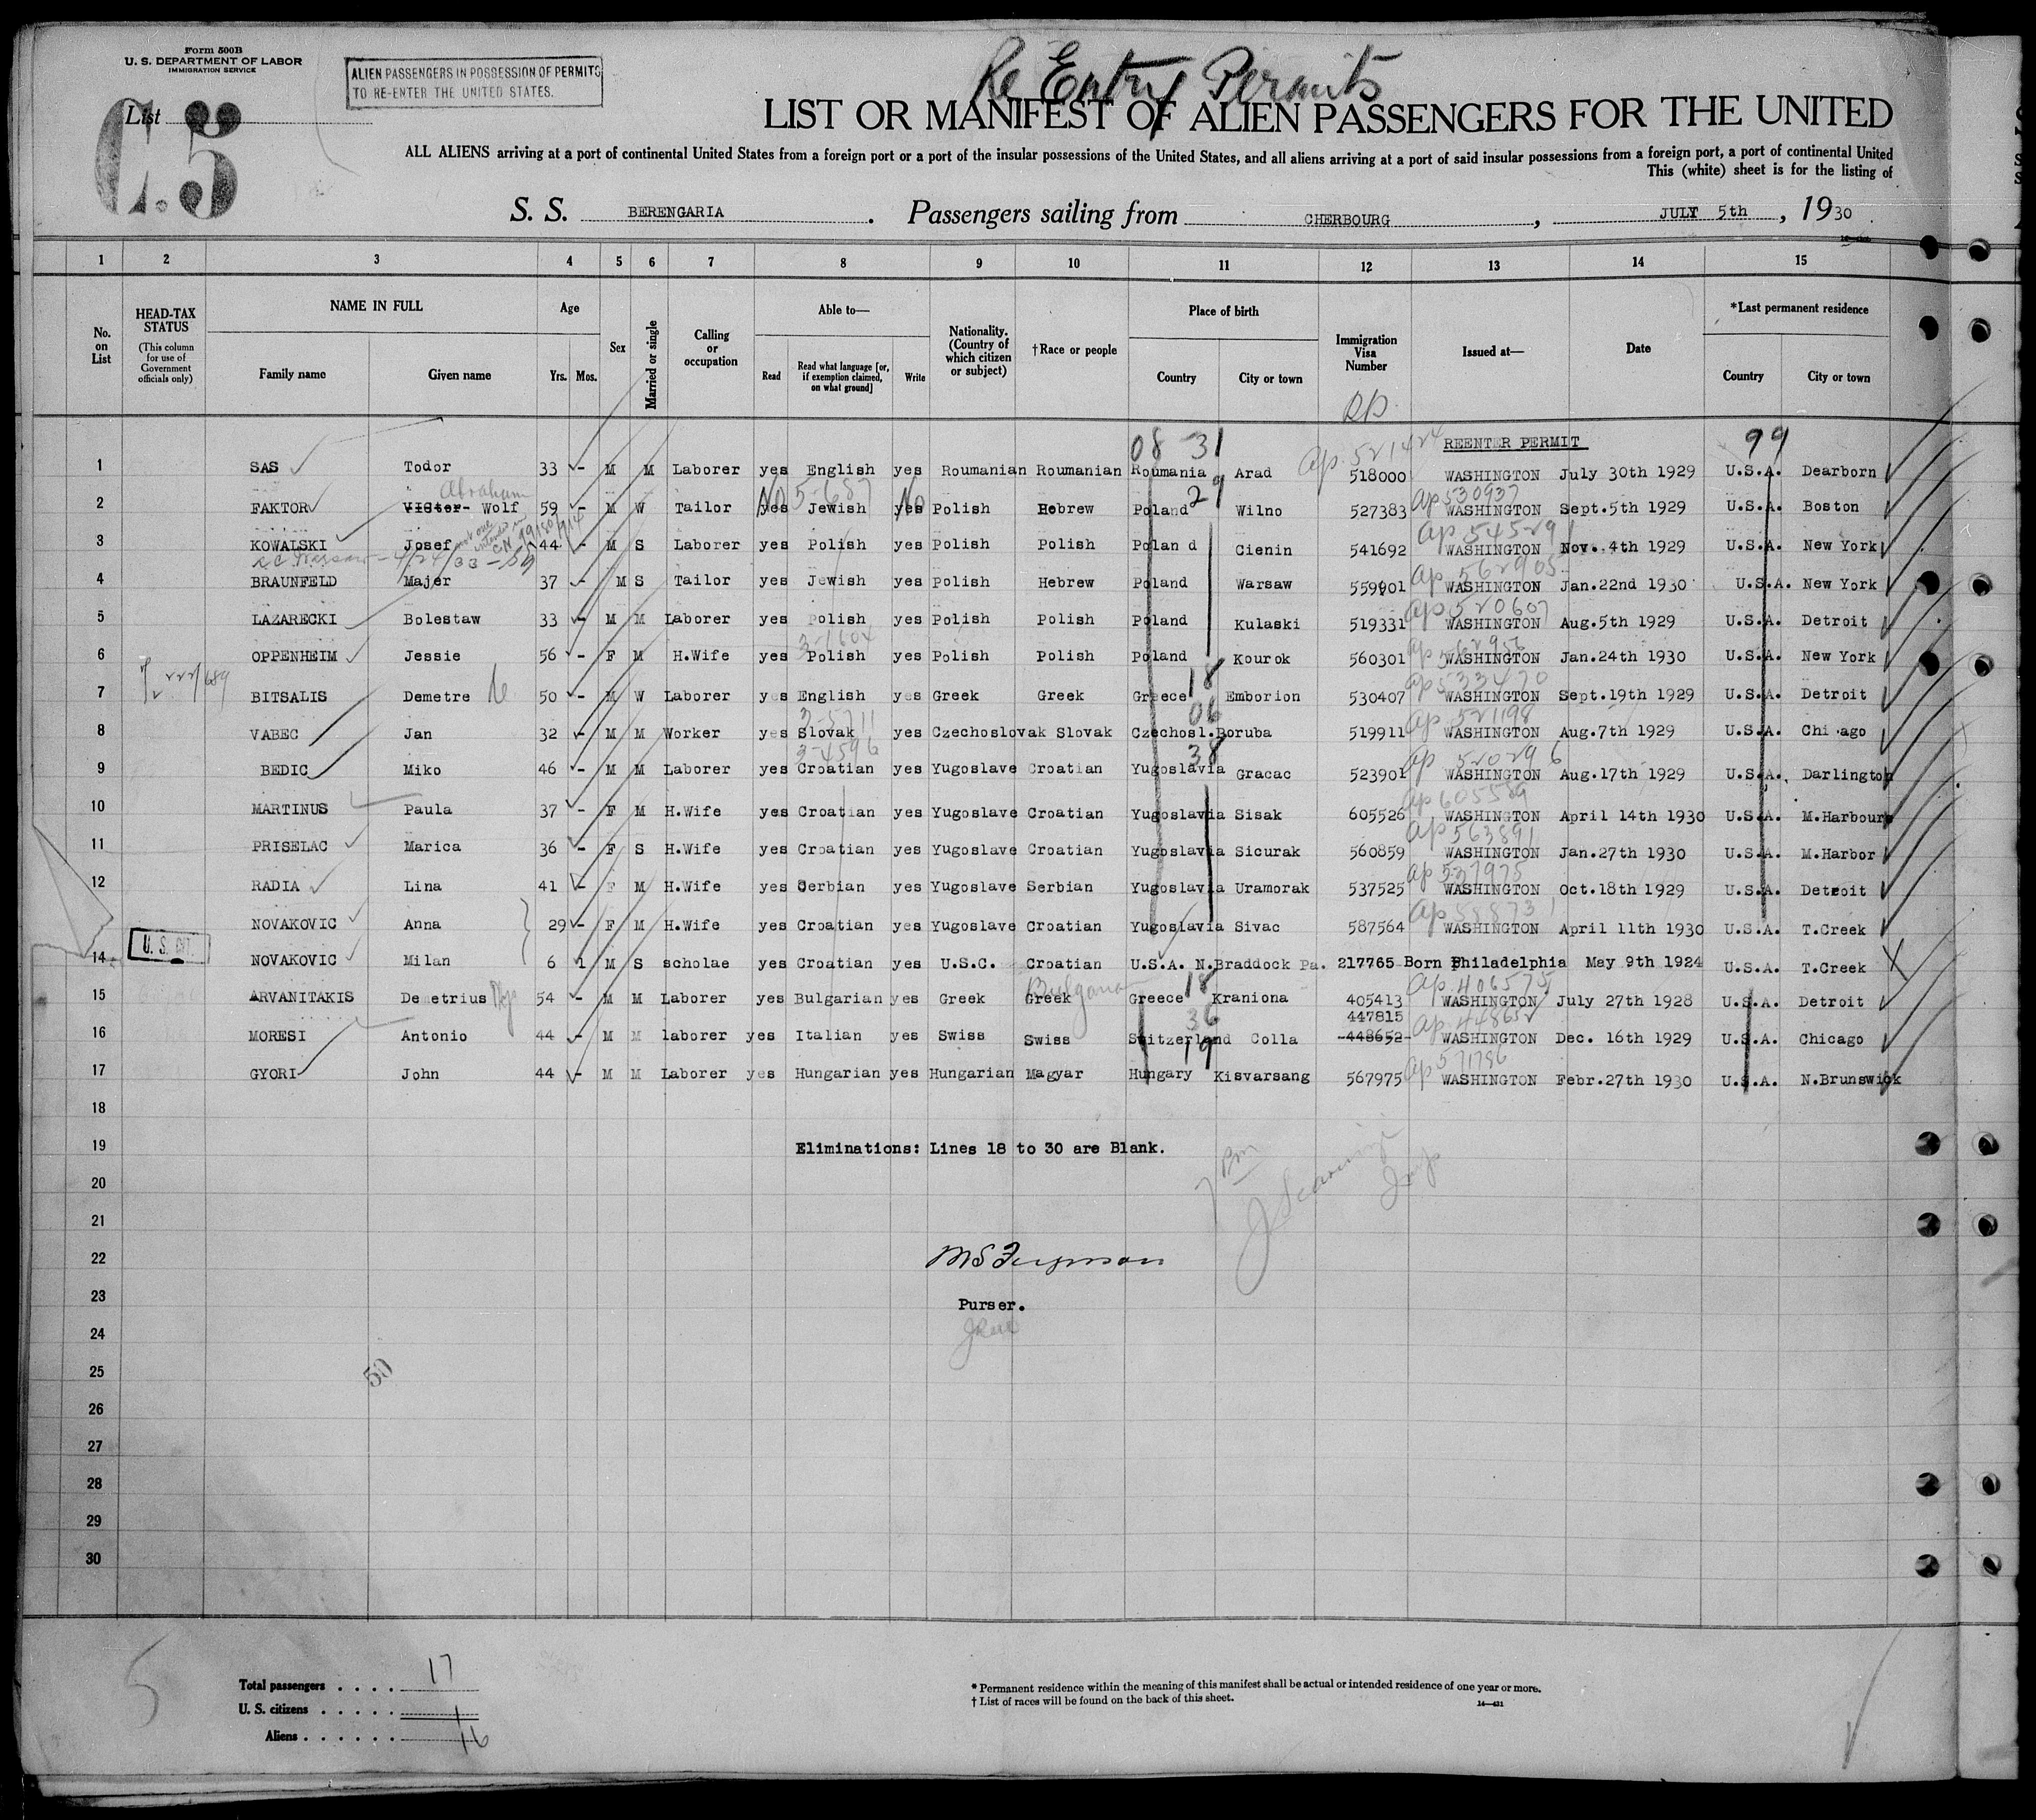 Form 500B
U. S. DEPARTMENT OF LABOR
IMMIGRATION SERVICE
ALIEN PASSENGERS IN POSSESSION OF PERMITS
TO RE-ENTER THE UNITED STATES.
Re Entry Permits
List
C.5
LIST OR MANIFEST OF ALIEN PASSENGERS FOR THE UNITED
ALL ALIENS arriving at a port of continental United States from a foreign port or a port of the insular possessions of the United States, and all aliens arriving at a port of said insular possessions from a foreign port, a port of continental United
This (white) sheet is for the listing of
S. S. BERENGARIA. Passengers sailing from CHERBOURG, JULY 5th, 1930
1 2 3 4 5 6 7 8 9 10 11 12 13 14 15
No. on List
HEAD-TAX STATUS
(This column for use of Government officials only)
NAME IN FULL
Family name Given name
Age
Yrs. Mos.
Sex
Married or single
Calling or occupation
Able to—
Read
Read what language [or, if exemption claimed, on what ground]
Write
Nationality. (Country of which citizen or subject)
†Race or people
Place of birth
Country City or town
Immigration Visa Number
Issued at—
Date
*Last permanent residence
Country City or town
08 31 REENTER PERMIT 99
1 SAS Todor 33 - M M Laborer yes English yes Roumanian Roumanian Roumania Arad 518000 ap. 521424 WASHINGTON July 30th 1929 U.S.A. Dearborn
Abraham No 5-687 No 29 ap 530937
2 FAKTOR Victor- Wolf 59 - M W Tailor yes Jewish yes Polish Hebrew Poland Wilno 527383 WASHINGTON Sept.5th 1929 U.S.A. Boston
3 KOWALSKI Josef 44 - M S Laborer yes Polish yes Polish Polish Poland Cienin 541692 WASHINGTON Nov. 4th 1929 U.S.A. New York
ap 562905
4 BRAUNFELD Majer 37 - M S Tailor yes Jewish yes Polish Hebrew Poland Warsaw 559901 WASHINGTON Jan.22nd 1930 U.S.A. New York
ap 520607
5 LAZARECKI Bolestaw 33 - M M Laborer yes Polish yes Polish Polish Poland Kulaski 519331 WASHINGTON Aug.5th 1929 U.S.A. Detroit
ap 562956
6 OPPENHEIM Jessie 56 - F M H.Wife yes Polish yes Polish Polish Poland Kourok 560301 WASHINGTON Jan.24th 1930 U.S.A. New York
18 ap 533470
7 BITSALIS Demetre 50 - M W Laborer yes English yes Greek Greek Greece Emborion 530407 WASHINGTON Sept.19th 1929 U.S.A. Detroit
2-5711 06 ap 521198
8 VABEC Jan 32 - M M Worker yes Slovak yes Czechoslovak Slovak Czechosl. Boruba 519911 WASHINGTON Aug.7th 1929 U.S.A. Chicago
2-4596 38 ap 520296
9 BEDIC Miko 46 - M M Laborer yes Croatian yes Yugoslave Croatian Yugoslavia Gracac 523901 WASHINGTON Aug.17th 1929 U.S.A. Darlington
ap 605589
10 MARTINUS Paula 37 - F M H.Wife yes Croatian yes Yugoslave Croatian Yugoslavia Sisak 605526 WASHINGTON April 14th 1930 U.S.A. M.Harbour
ap 563891
11 PRISELAC Marica 36 - F S H.Wife yes Croatian yes Yugoslave Croatian Yugoslavia Sicurak 560859 WASHINGTON Jan.27th 1930 U.S.A. M.Harbor
ap 537975
12 RADIA Lina 41 - F M H.Wife yes Serbian yes Yugoslave Serbian Yugoslavia Uramorak 537525 WASHINGTON Oct.18th 1929 U.S.A. Detroit
ap 588731
NOVAKOVIC Anna 29 - F M H.Wife yes Croatian yes Yugoslave Croatian Yugoslavia Sivac 587564 WASHINGTON April 11th 1930 U.S.A. T.Creek
U. S. CIT.
14 NOVAKOVIC Milan 6 1 M S scholae yes Croatian yes U.S.C. Croatian U.S.A. N.Braddock Pa. 217765 Born Philadelphia May 9th 1924 U.S.A. T.Creek X
Bulgarian 18 ap. 406575
15 ARVANITAKIS Demetrius 54 - M M Laborer yes Bulgarian yes Greek Greek Greece Kraniona 405413 WASHINGTON July 27th 1928 U.S.A. Detroit
36 447815 ap. 448652
16 MORESI Antonio 44 - M M laborer yes Italian yes Swiss Swiss Switzerland Colla 448652 WASHINGTON Dec. 16th 1929 U.S.A. Chicago
19 ap 571786
17 GYORI John 44 - M M Laborer yes Hungarian yes Hungarian Magyar Hungary Kisvarsang 567975 WASHINGTON Febr.27th 1930 U.S.A. N.Brunswick
18
19 Eliminations: Lines 18 to 30 are Blank.
20
21
22 MS Ferguson
23 Purser.
24
25 50
26
27
28
29
30
5
Total passengers 17
U. S. citizens 1
Aliens 16
* Permanent residence within the meaning of this manifest shall be actual or intended residence of one year or more.
† List of races will be found on the back of this sheet. 14—431